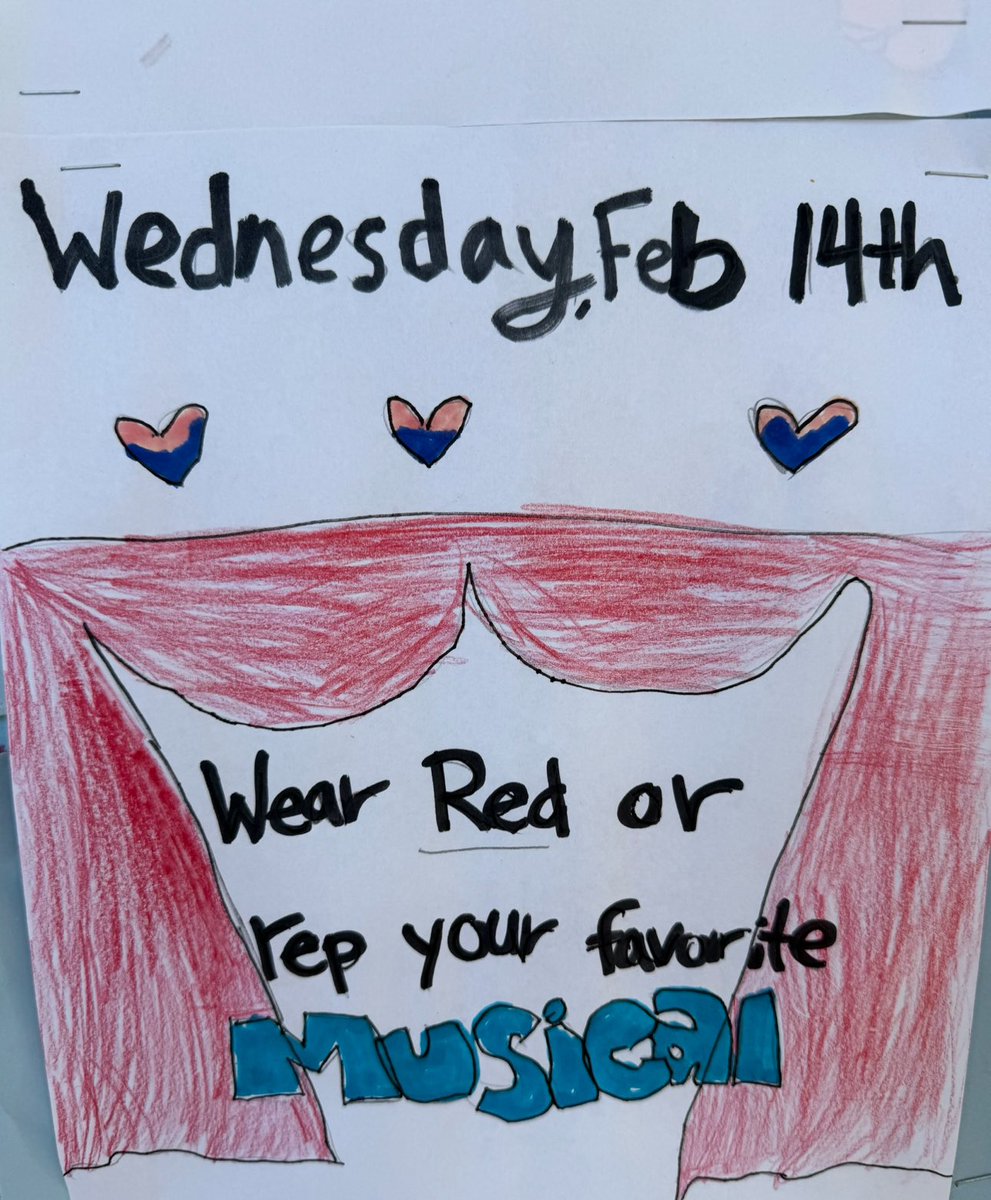 Wednesday, Feb 14th
Wear Red or
rep your favorite
Musical